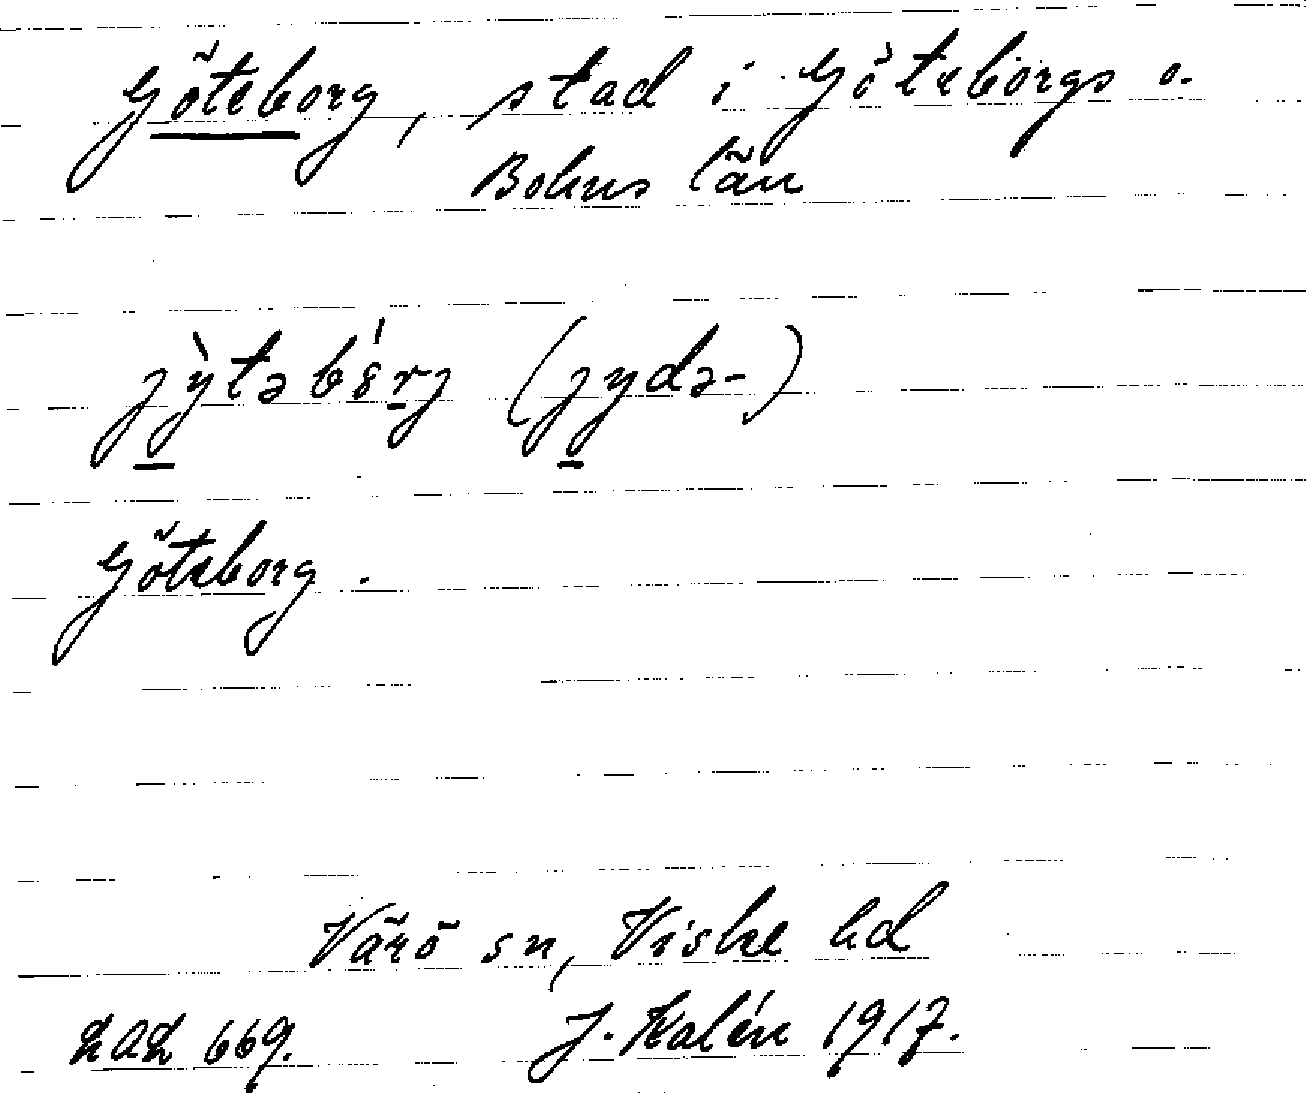 Göteborg, stad i Göteborgs o.
Bohus län
jỳtəbórj (jydə-)
Göteborg.
Värö sn, Viske hd
LAL 669. J. Kalén 1917.